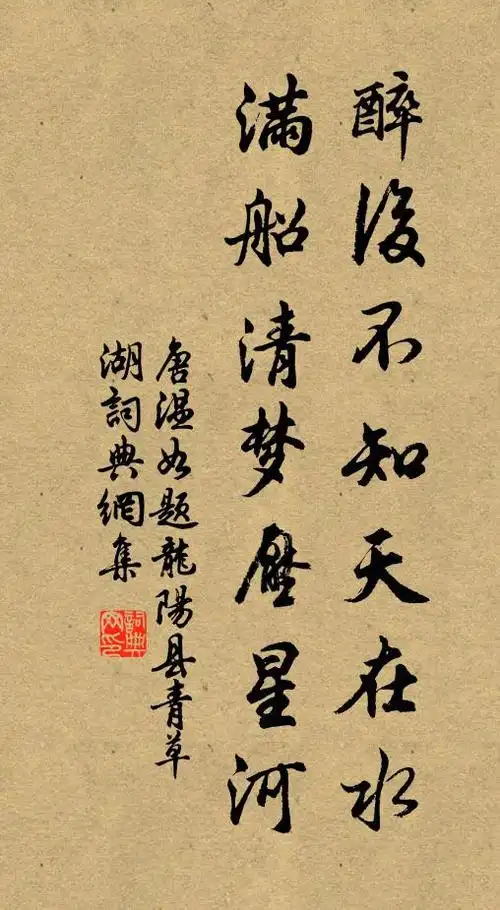 醉後不知天在水
满船清梦壓星河
唐温如题龍陽县青草
湖詞典網集
詞典網印